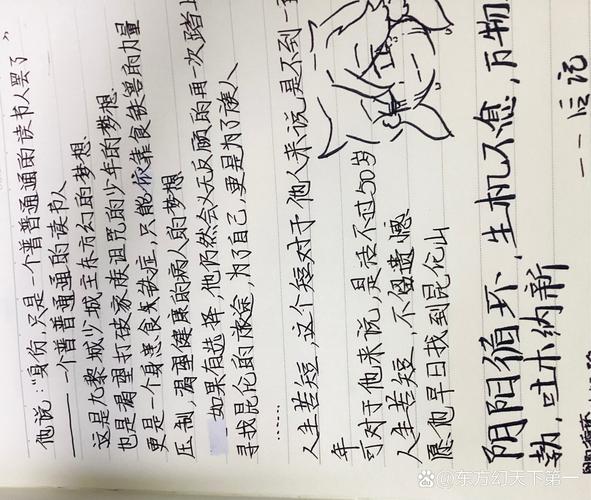 他说:“身份,只是一个普普通通的读书人罢了”
——一个普普通通的读书人
这是九黎城少城主东方幻的梦想
也是渴望打破家族诅咒的少年的梦想
更是一个身患食铁症,只能依靠食铁兽的力量
压制,渴望健康的病人的梦想
如果有选择,他仍然会义无反顾的再一次踏上
寻找昆仑的旅途,为了自己,更是为了族人
……
人生苦短,这个短对于他人来说是不到一
年
可对于他来说,是活不过50岁
人生苦短,不留遗憾
愿他早日找到昆仑山
阴阳循环、生机不息,万物
勃,吐纳新
——后记
Baidu百科@东方幻天下第一